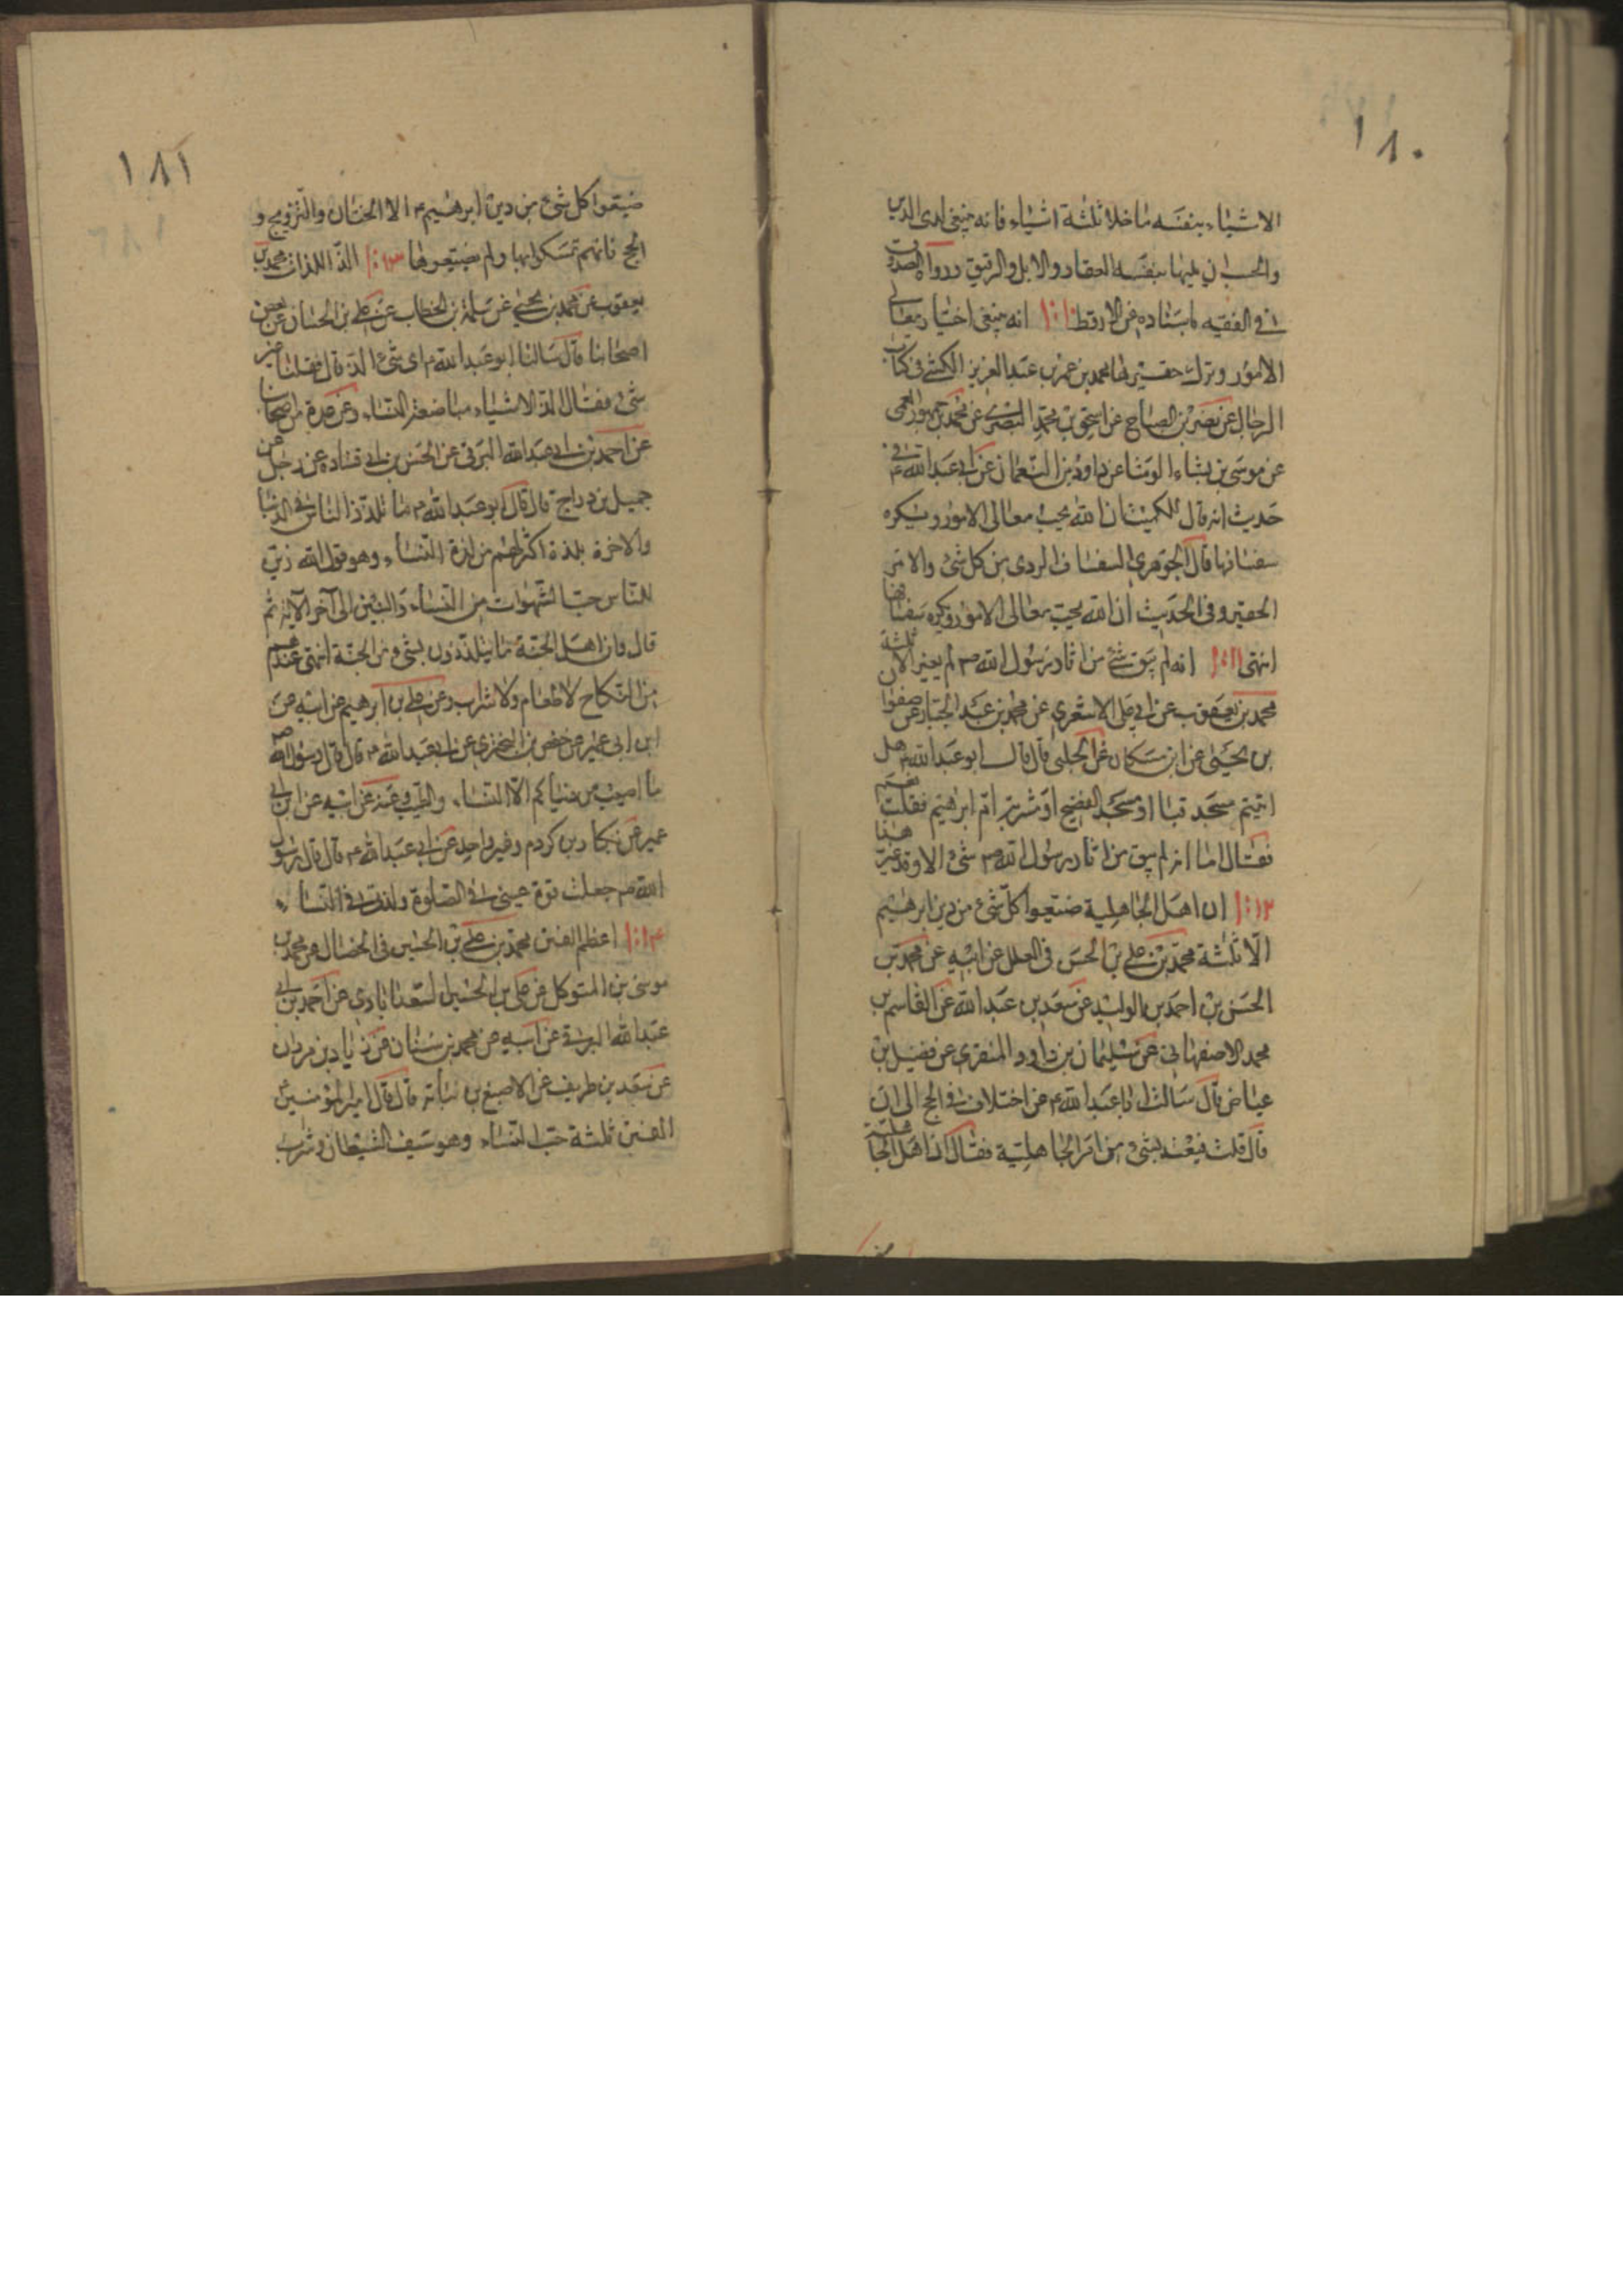 ١٨٠
الاشياء بنفسه ما خلا ثلثة اشياء فانه ينبغى لذى الدين
والحسب ان يليها بنفسه العقار والابل والرقيق ورواه الصدوق
فى الفقيه باسناده عن الارقط ١٠:١ انه ينبغى اختيار معالى
الامور وترك حقيرها محمد بن عمر بن عبد العزيز الكشى فى كتاب
الرجال عن نصر بن الصباح عن اسحق بن محمد البصرى عن محمد بن جمهور العمى
عن موسى بن بشار الوشا عن داود بن النعمان عن ابى عبد الله ع فى
حديث انه قال للكميت ان الله يحب معالى الامور ويكره
سفسافها قال الجوهرى السفساف الردى من كل شئ والامر
الحقير وفى الحديث ان الله يحب معالى الامور ويكره سفسافها
انتهى ١١:١ انه لم يبق شئ من اثار رسول الله ص لم يغير الا ثلثة
محمد بن يعقوب عن ابى على الاشعرى عن محمد بن عبد الجبار عن صفوان
بن يحيى عن ابن مسكان عن الحلبى قال قال ابو عبد الله ع هل
اتيتم مسجد قبا او مسجد الفضيخ او مشربة ام ابرهيم فقلت نعم
فقال اما انه لم يبق من اثار رسول الله ص شئ الا وقد غير هذا
١٢:١ ان اهل الجاهلية ضيعوا كل شئ من دين ابرهيم
الا ثلثة محمد بن على بن الحسين فى العلل عن ابيه عن محمد بن
الحسن بن احمد بن الوليد عن سعد بن عبد الله عن القاسم بن
محمد الاصفهانى عن سليمان بن داود المنقرى عن فضيل بن
عياض قال سالت ابا عبد الله ع عن اختلاف فى الحج الى ان
قال قلت فيعتد بشئ من امر الجاهلية فقال ان اهل الجاهلية
١٨١
ضيعوا كل شئ من دين ابرهيم ع الا الختان والتزويج و
الحج فانهم تمسكوا بها ولم يضيعوها ١٣:١ الذ اللذات محمد بن
يعقوب عن محمد بن يحيى عن سلمة بن الخطاب عن على بن الحسان عن بعض
اصحابنا قال سالنا ابو عبد الله ع اى شئ الذ قال فقلنا غير
شئ فقال الذ الاشياء مباضعة النساء وعن عدة من اصحابنا
عن احمد بن ابى عبد الله البرقى عن الحسن بن ابى قتادة عن رجل عن
جميل بن دراج قال قال ابو عبد الله ع ما تلذذ الناس فى الدنيا
والاخرة بلذة اكثر لهم من لذة النساء وهو قول الله زين
للناس حب الشهوات من النساء والبنين الى آخر الآية ثم
قال وان اهل الجنة ما يتلذذون بشئ من الجنة اشهى عندهم
من النكاح لا طعام ولا شراب وعن على بن ابرهيم عن ابيه عن
ابن ابى عمير عن حفص بن البخترى عن ابى عبد الله ع قال قال رسول الله ص
ما اصيب من دنياكم الا النساء والطيب وعنه عن ابيه عن ابن ابى
عمير عن بكار بن كردم وغير واحد عن ابى عبد الله ع قال قال رسول
الله ص جعلت قرة عينى فى الصلوة ولذتى فى النساء
١٤:١ اعظم الفتن محمد بن على بن الحسين فى الخصال عن محمد بن
موسى بن المتوكل عن على بن الحسين السعدابادى عن احمد بن ابى
عبد الله البرقى عن ابيه عن محمد بن سنان عن زياد بن مروان
عن سعد بن طريف عن الاصبغ بن نباتة قال قال امير المؤمنين ع
الفتن ثلثة حب النساء وهو سيف الشيطان وشرب